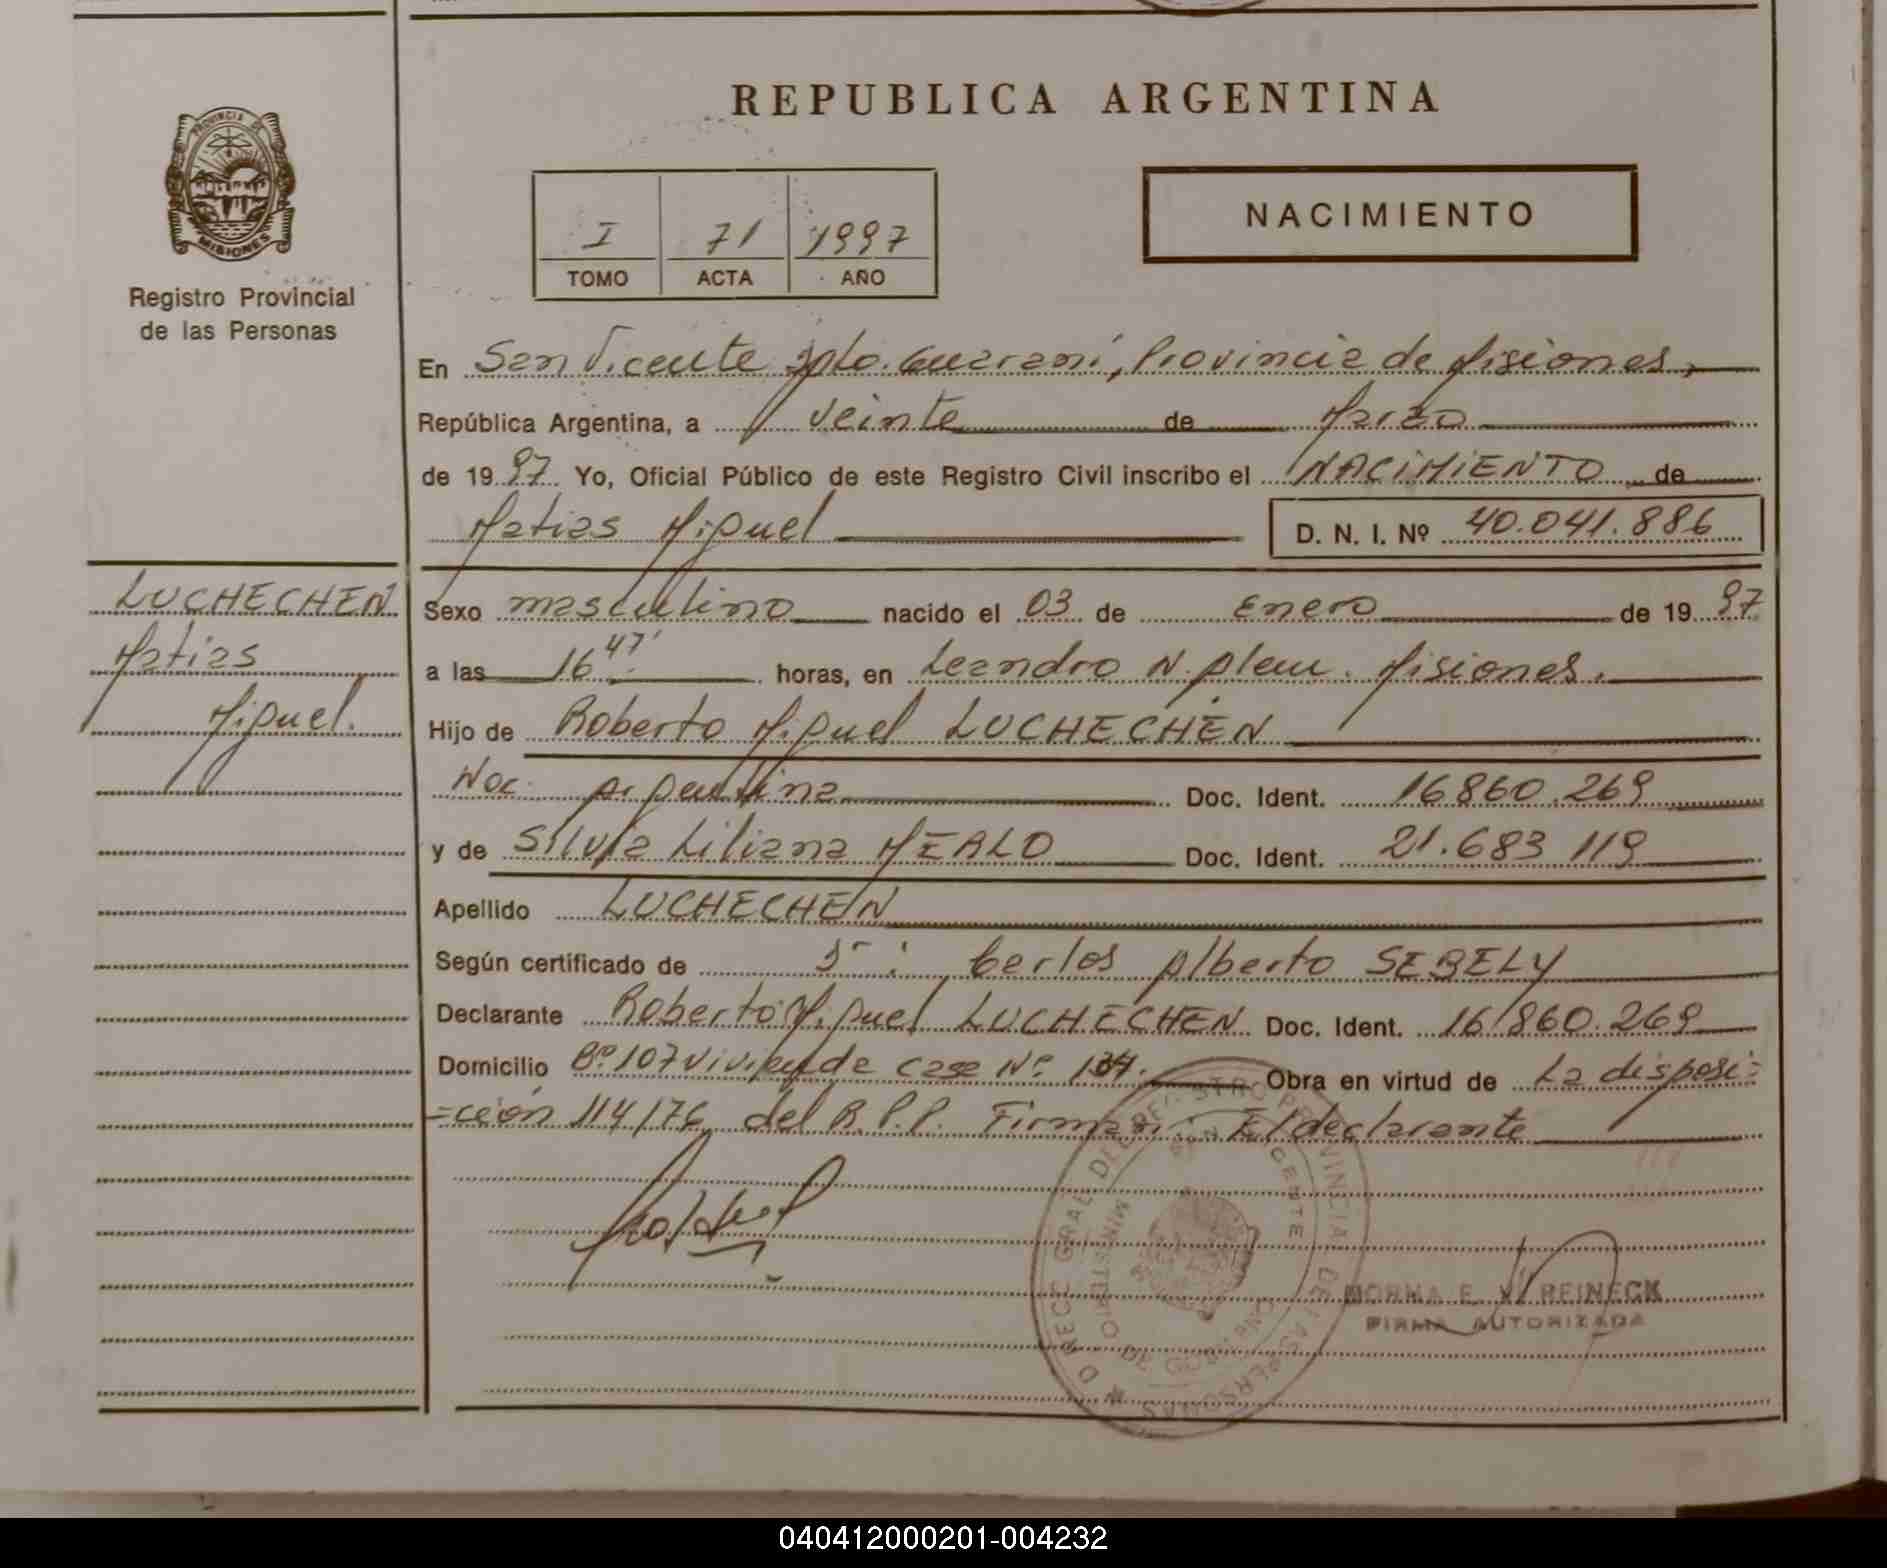 REPUBLICA ARGENTINA
PROVINCIA DE
MISIONES
Registro Provincial
de las Personas
I 71 1997
TOMO ACTA AÑO
NACIMIENTO
En San Vicente Dpto. Guaraní, Provincia de Misiones,
República Argentina, a veinte de Marzo
de 1997 Yo, Oficial Público de este Registro Civil inscribo el NACIMIENTO de
Matias Miguel D. N. I. Nº 40.041.886
LUCHECHEN
Matias
Miguel.
Sexo masculino nacido el 03 de Enero de 1997
a las 16 47' horas, en Leandro N. Alem. Misiones.
Hijo de Roberto Miguel LUCHECHEN
Nac. Argentina Doc. Ident. 16860.269
y de Silvia Liliana MERLO Doc. Ident. 21.683 119
Apellido LUCHECHEN
Según certificado de Carlos Alberto SEBELY
Declarante Roberto Miguel LUCHECHEN Doc. Ident. 16/860.269
Domicilio Bº. 107 Vivienda Casa Nº Obra en virtud de La disposi=
=ción 114/76 del R.P.P. Firman: El declarante
DIRECC GRAL DEL REGISTRO PROVINCIAL DE LAS PERSONAS
SAN VICENTE
MINISTERIO DE GOBIERNO
NORMA E. REINECK
FIRMA AUTORIZADA
040412000201-004232